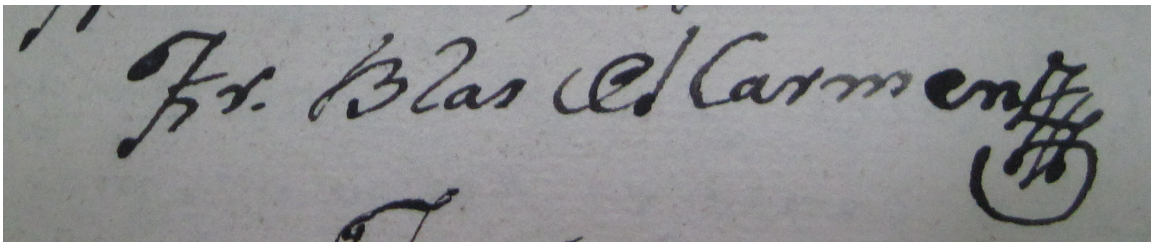 Fr. Blas del Carmen